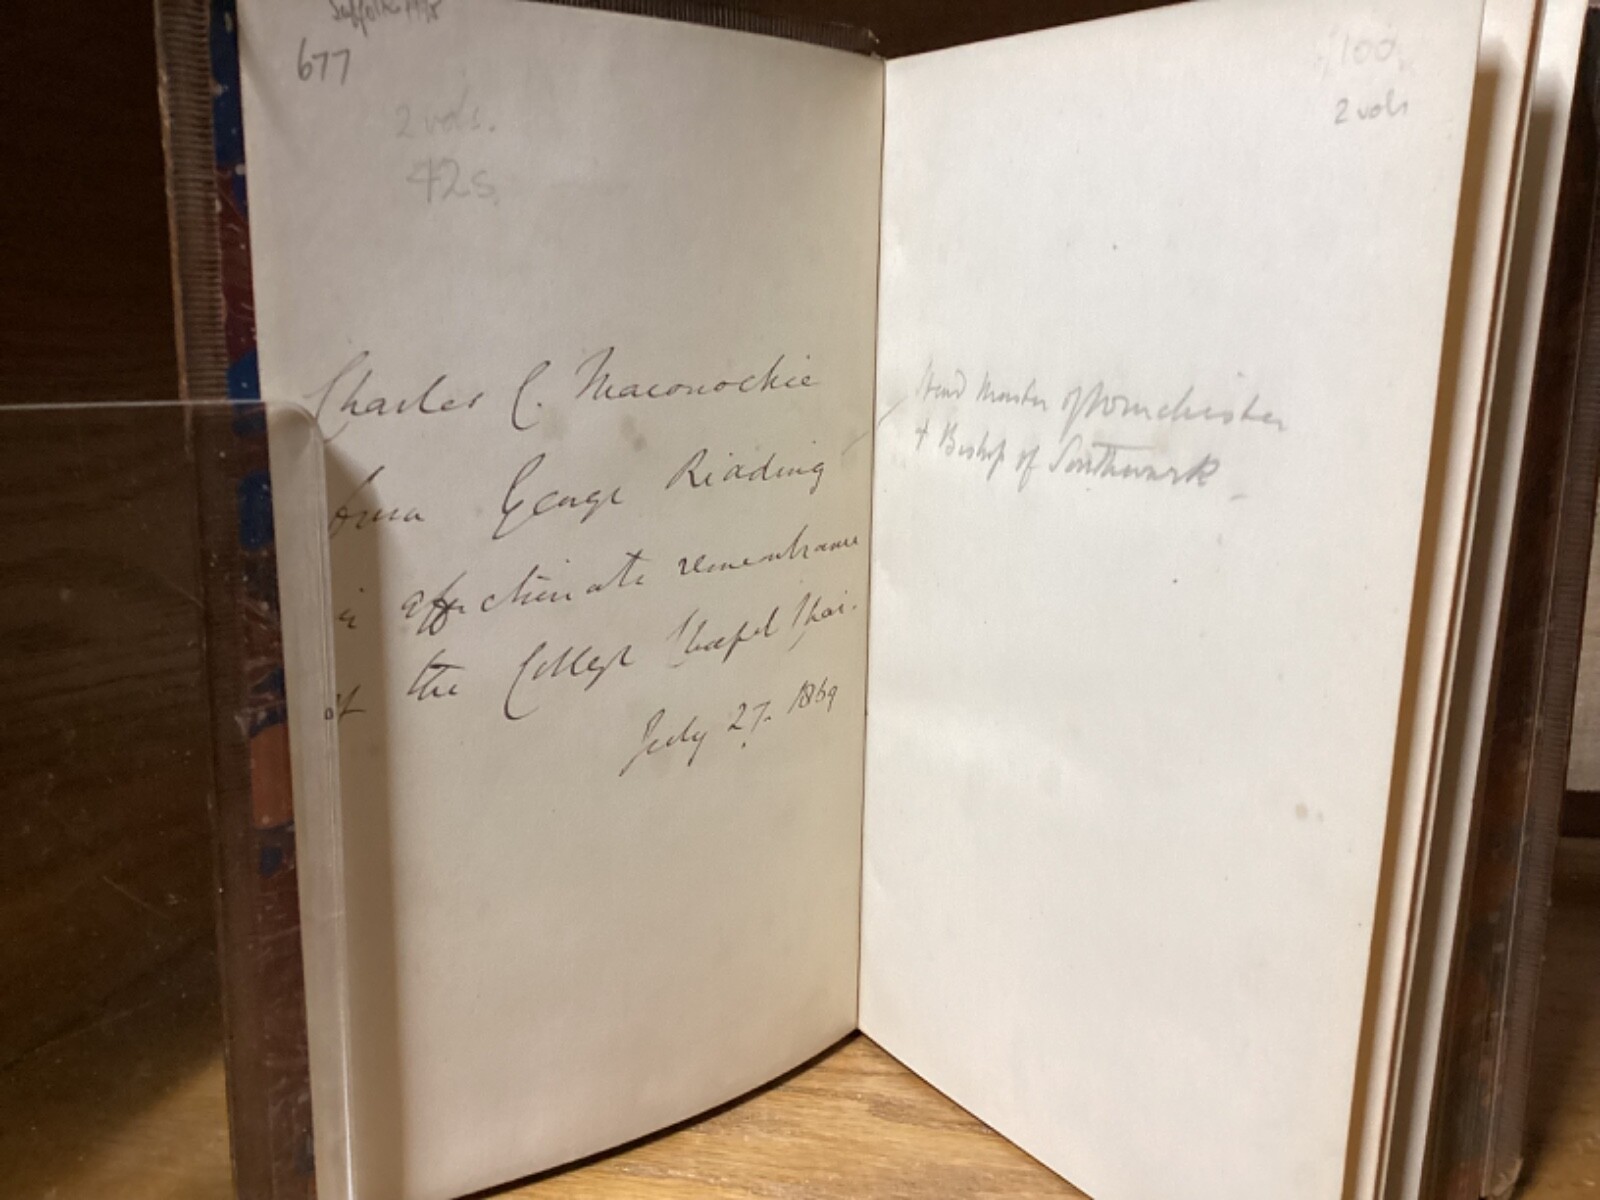 677
2 vols.
42s.
Charles C. Maconochie
from George Ridding
in affectionate remembrance
of the College Chapel Choir.
July 27. 1869
100
2 vols
Head Master of Winchester
& Bishop of Southwark